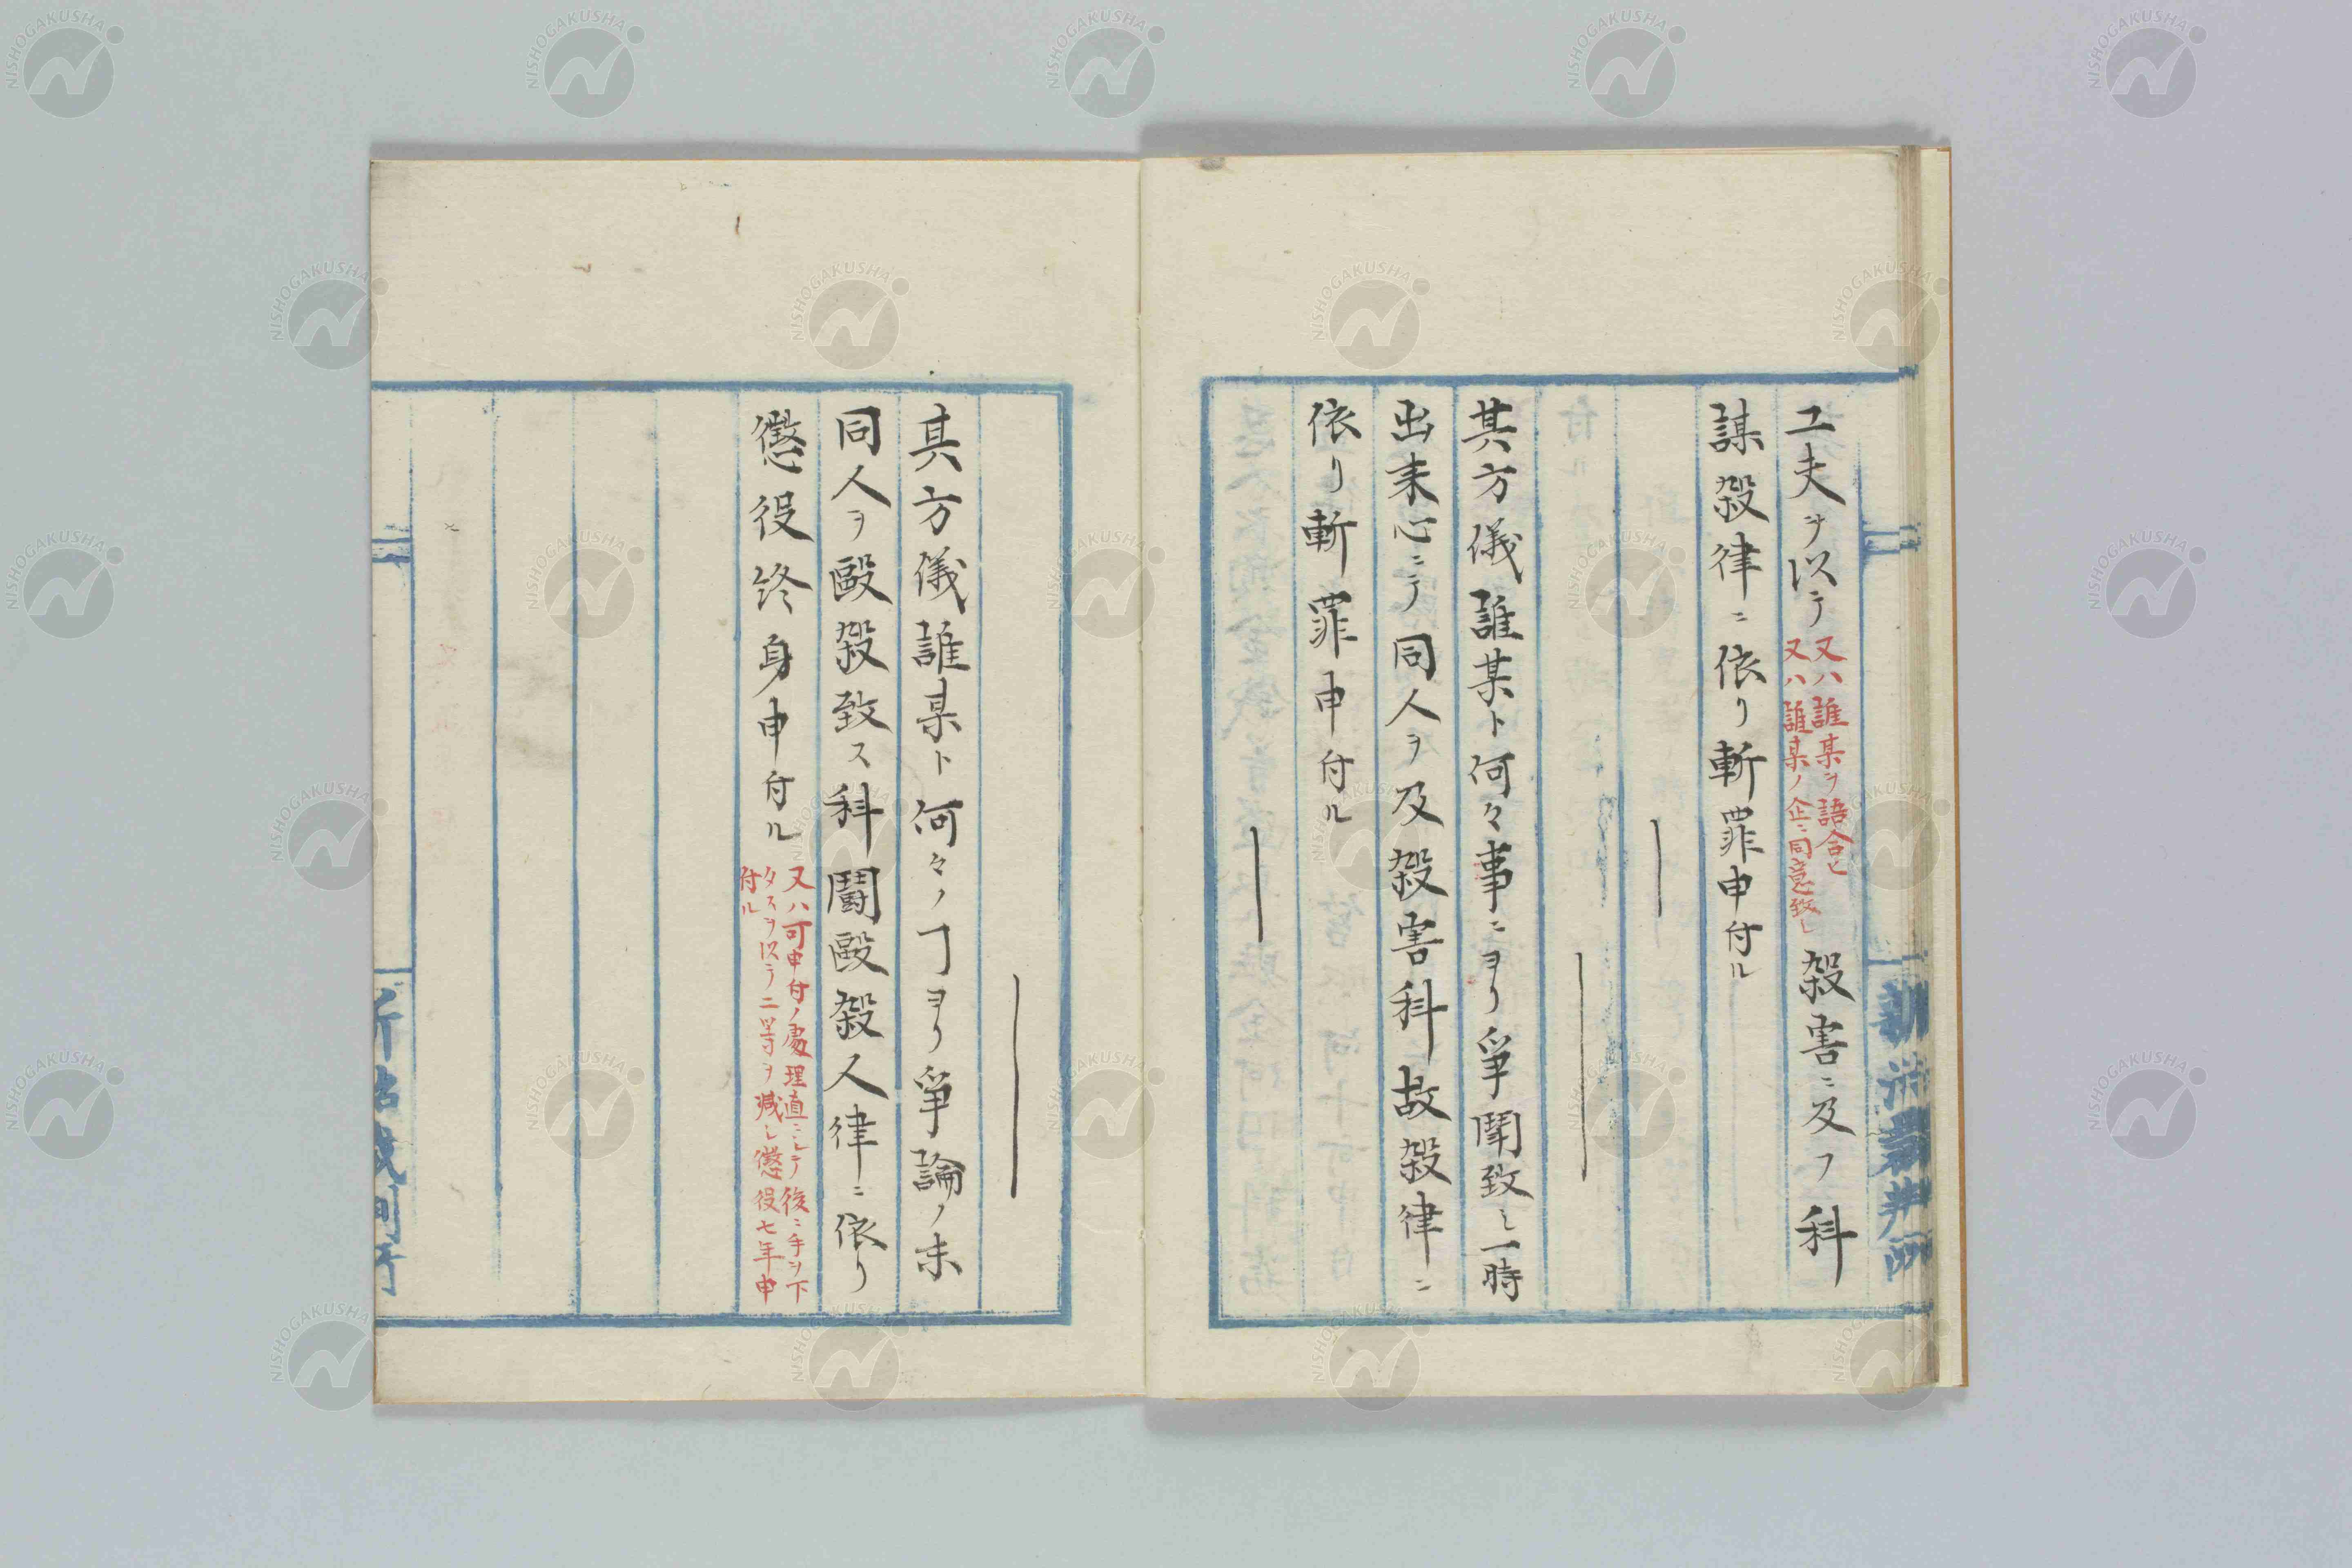 工夫ヲ以テ又ハ誰某ヲ語合ヒ又ハ誰某ノ企ニ同意致シ殺害ニ及フ科
謀殺律ニ依リ斬罪申付ル
其方儀誰某ト何々事ニヨリ爭鬪致シ一時
出来心ニテ同人ヲ及殺害科故殺律ニ
依リ斬罪申付ル
其方儀誰某ト何々ノヿヨリ爭論ノ末
同人ヲ毆殺致ス科鬪毆殺人律ニ依リ
懲役終身申付ル
又ハ可申付ノ處理直ニシテ後ニ手ヲ下
タスヲ以テ二等ヲ減シ懲役七年申
付ル
NISHOGAKUSHA